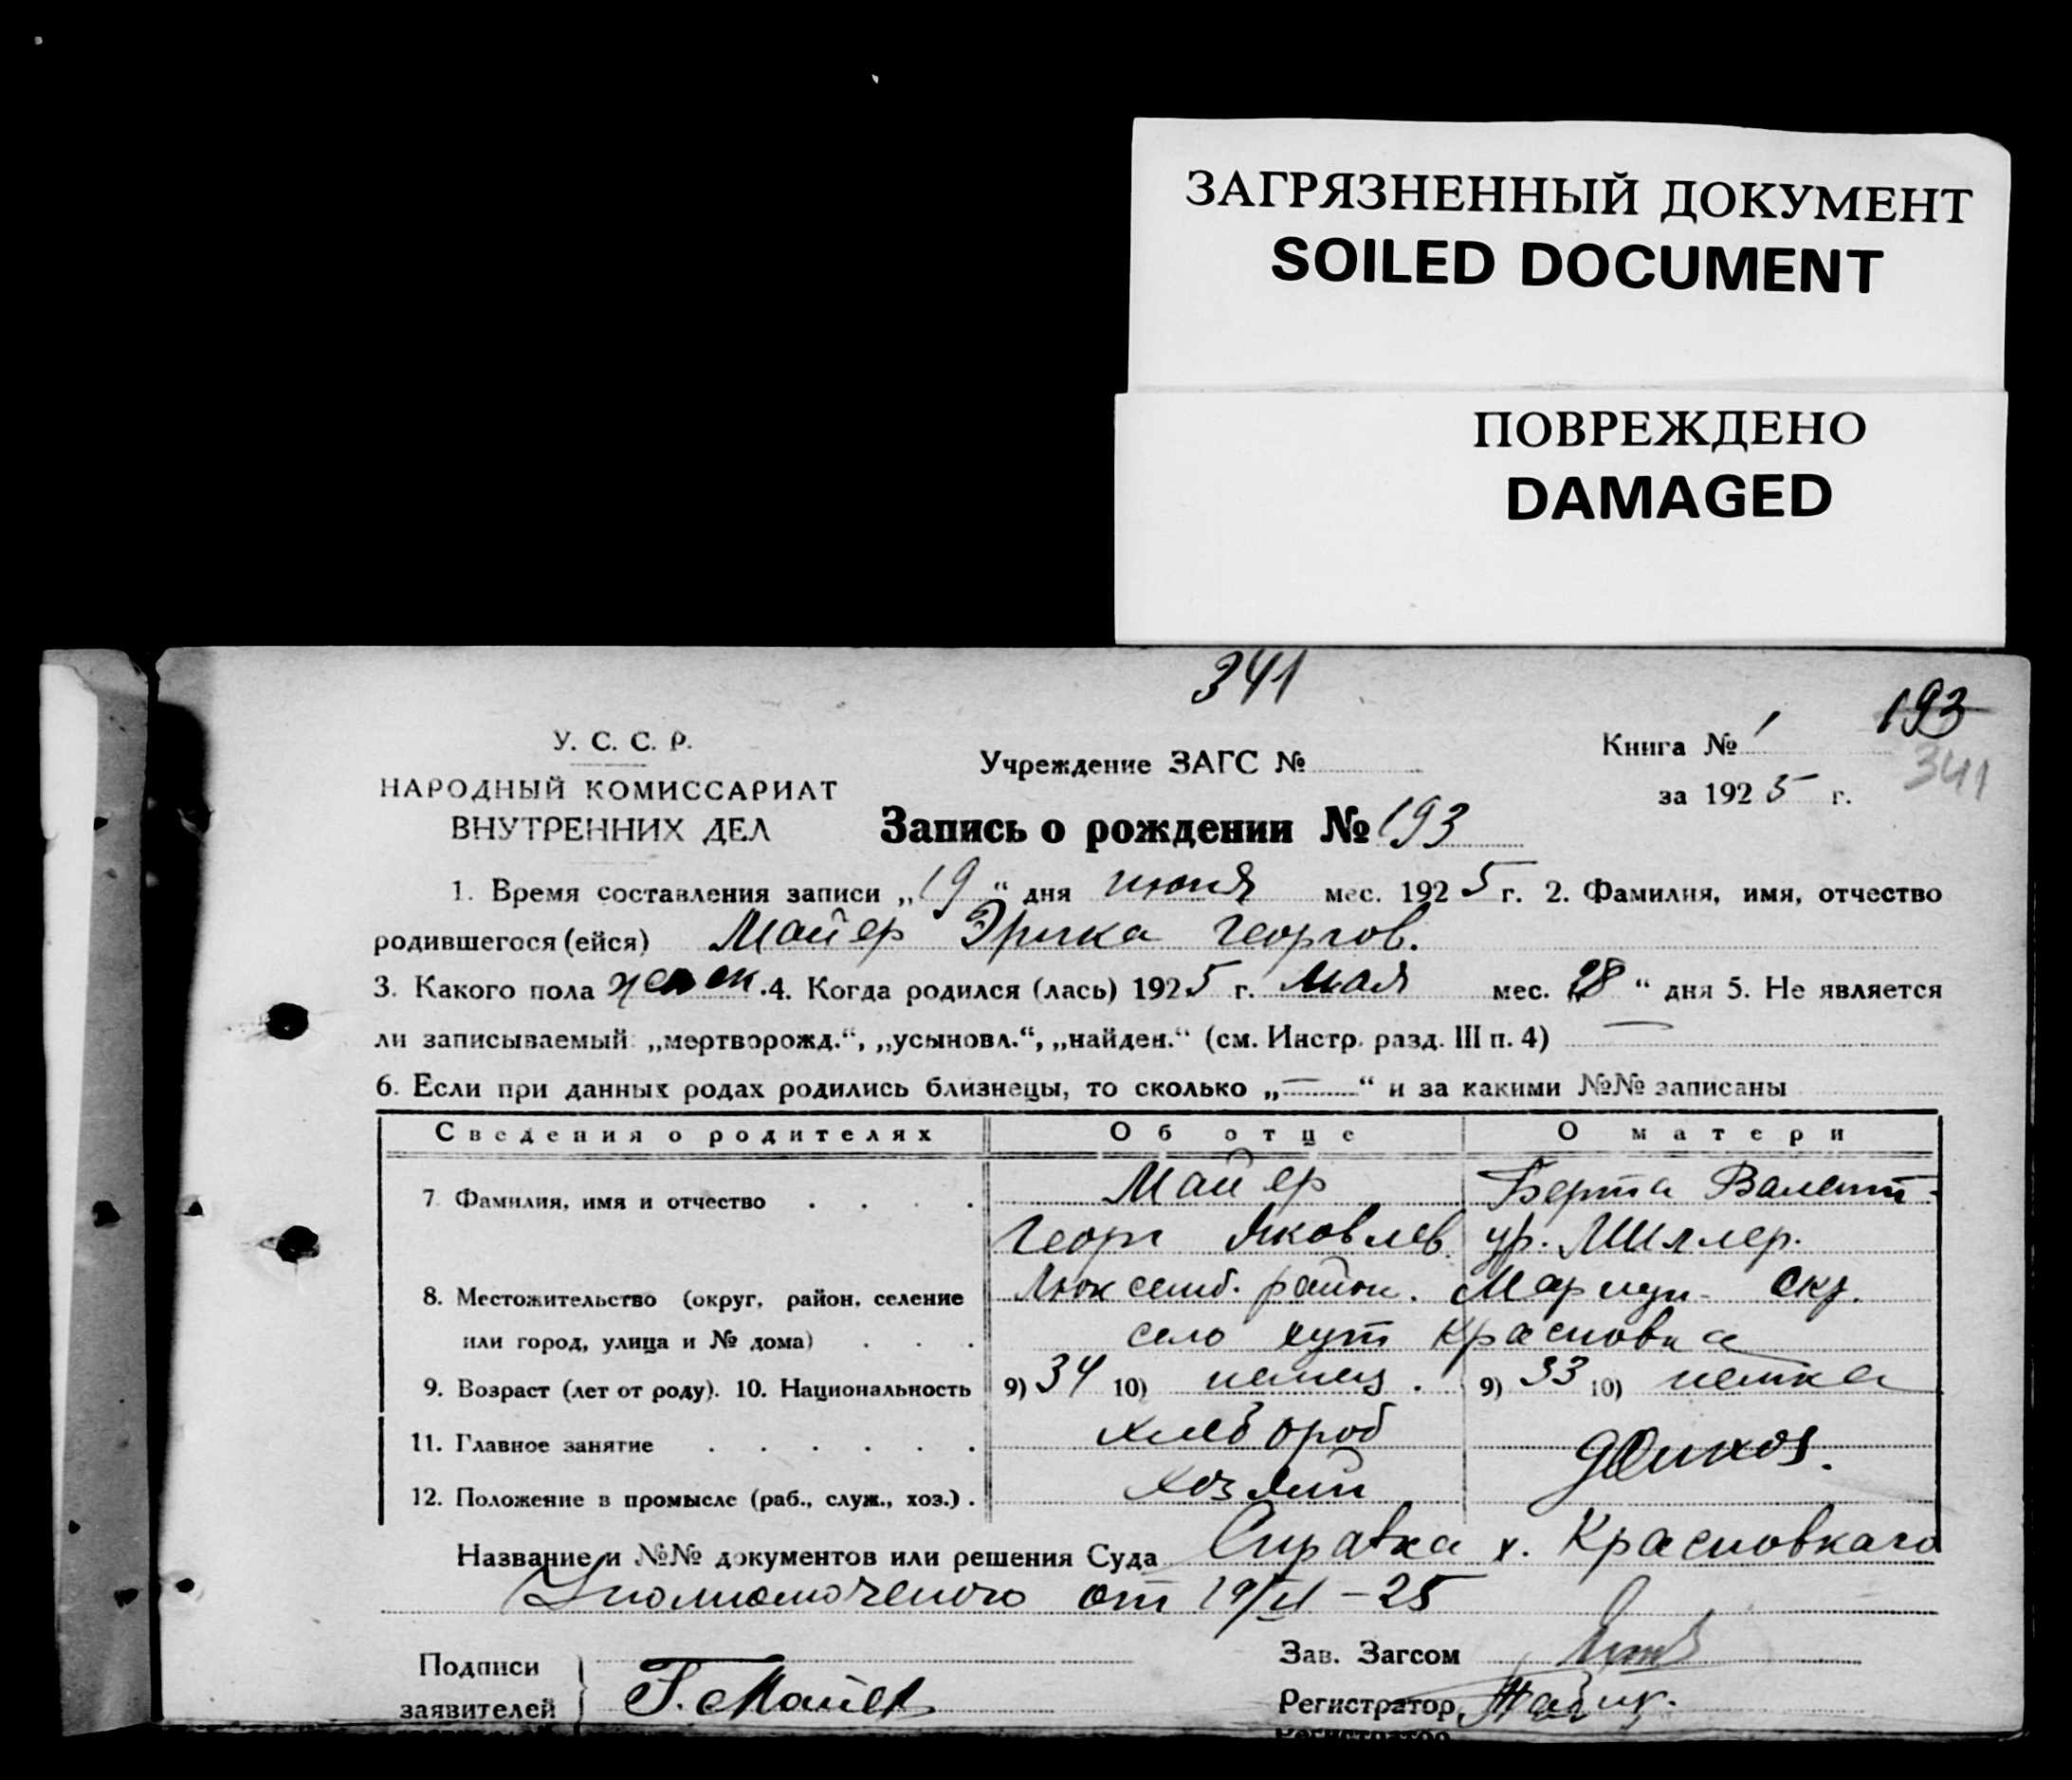 ЗАГРЯЗНЕННЫЙ ДОКУМЕНТ
SOILED DOCUMENT
ПОВРЕЖДЕНО
DAMAGED
341
193
У. С. С. Р.
Книга № 1
Учреждение ЗАГС №
341
НАРОДНЫЙ КОМИССАРИАТ
за 1925 г.
ВНУТРЕННИХ ДЕЛ
Запись о рождении № 193
1. Время составления записи „19“ дня июня мес. 1925 г. 2. Фамилия, имя, отчество
родившегося (ейся) Майер Эрика Георгов.
3. Какого пола женск. 4. Когда родился (лась) 1925 г. мая мес. „28“ дня 5. Не является
ли записываемый „мертворожд.“, „усыновл.“, „найден.“ (см. Инстр. разд. III п. 4) —
6. Если при данных родах родились близнецы, то сколько „—“ и за какими №№ записаны
Сведения о родителях Об отце О матери
7 Фамилия, имя и отчество . . . . Майер Берта Валент-
Георг Яковлев. ур. Миллер.
8. Местожительство (округ, район, селение Люксемб. район. Мариуп- окр.
или город, улица и № дома) . . . село хут Красновка
9. Возраст (лет от роду). 10. Национальность 9) 34 10) немец. 9) 33 10) немка
11. Главное занятие . . . . . . хлебороб домхоз.
12. Положение в промысле (раб., служ., хоз.) . хозяин
Название и №№ документов или решения Суда Справка х. Красновкаго
Уполномоченого от 19/VI – 25
Подписи Зав. Загсом
заявителей Г. Майер Регистратор
Регистратор